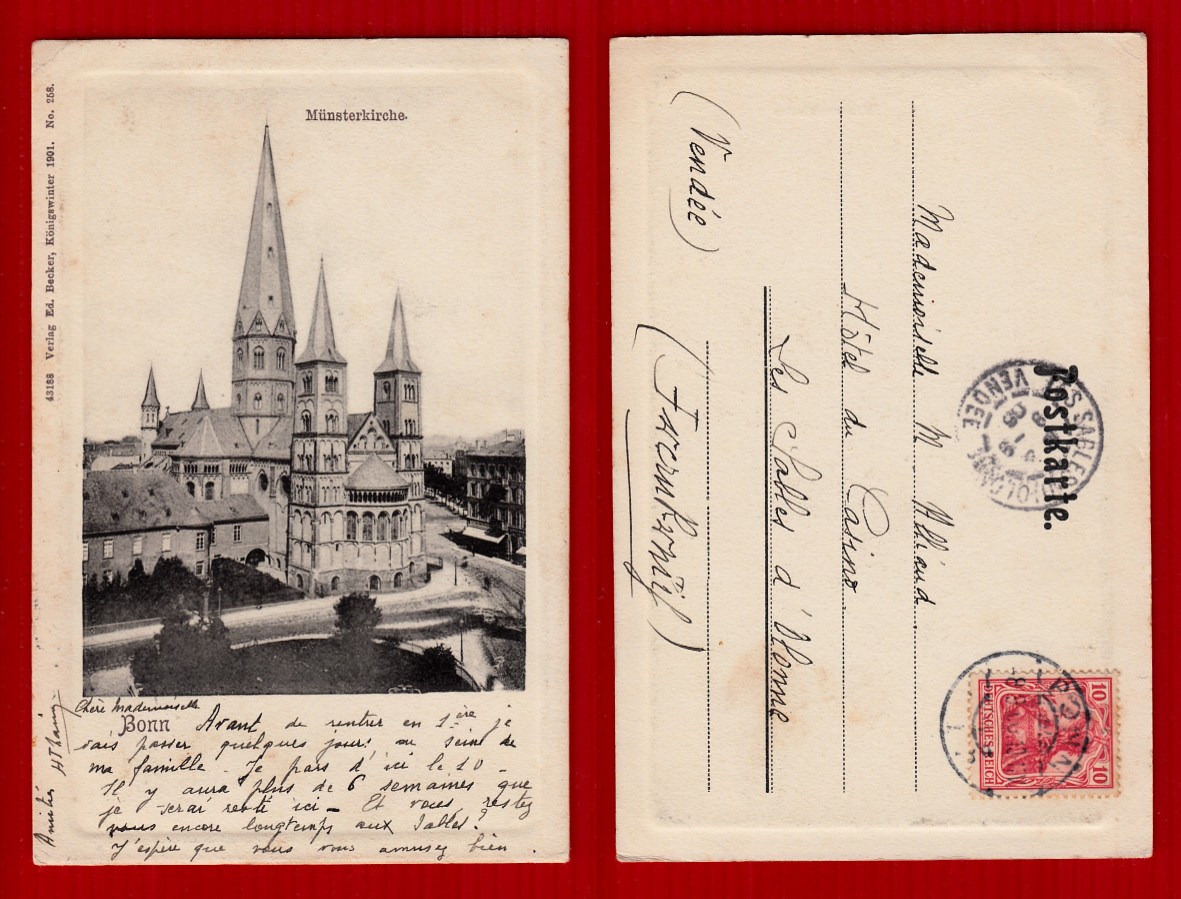 43188 Verlag Ed. Becker, Königswinter 1901. No. 258.
Münsterkirche.
Bonn
Chère Mademoiselle
Avant de rentrer en 1ère je
vais passer quelques jours au sein de
ma famille - Je pars d'ici le 10 -
Il y aura plus de 6 semaines que
je serai resté ici - Et vous restez
vous encore longtemps aux Sables?
J'espère que vous vous amusez bien.
Amitiés
Postkarte.
Mademoiselle M
Hôtel du Casino
Les Salles d'Olonne
(Vendée)
(Frankreich)
LES SABLES D'OLONNE
VENDÉE
BONN
DEUTSCHES REICH
10 10